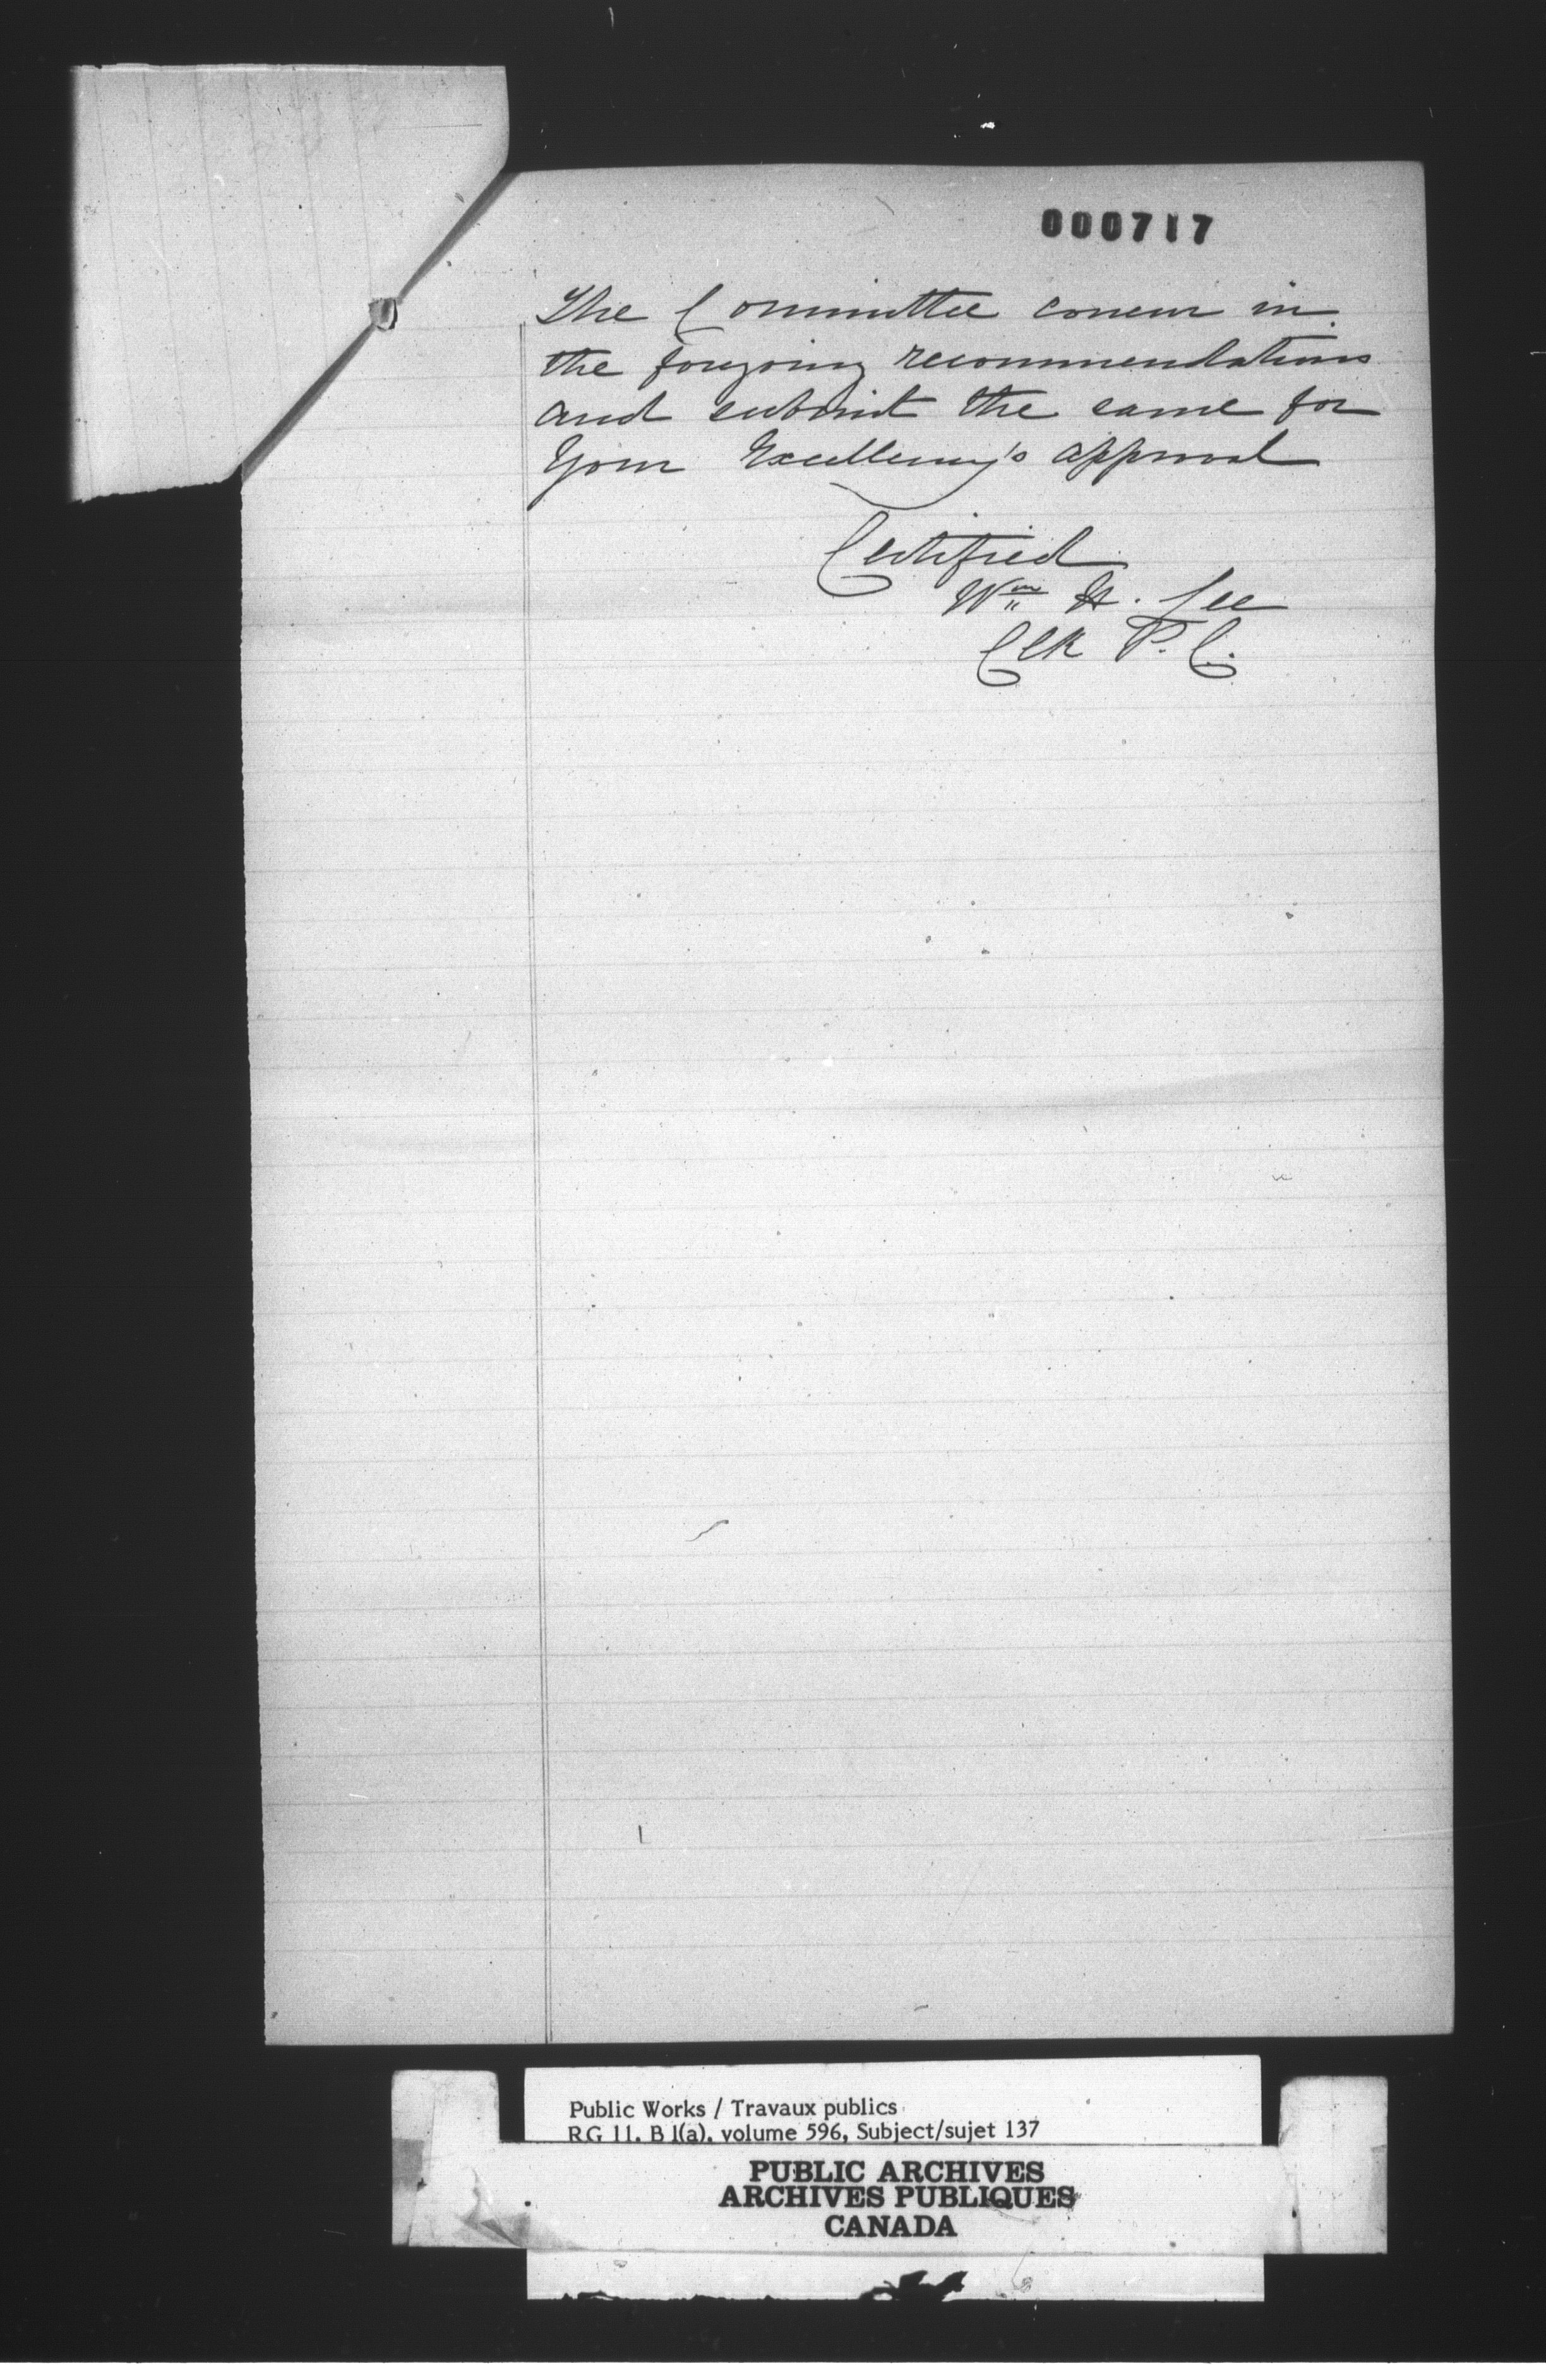 000717
The Committee concur in
the foregoing recommendations
and submit the same for
Your Excellency's approval
Certified
Wm H. Lee
Clk P. C.
Public Works / Travaux publics
RG 11, B 1(a), volume 596, Subject/sujet 137
PUBLIC ARCHIVES
ARCHIVES PUBLIQUES
CANADA